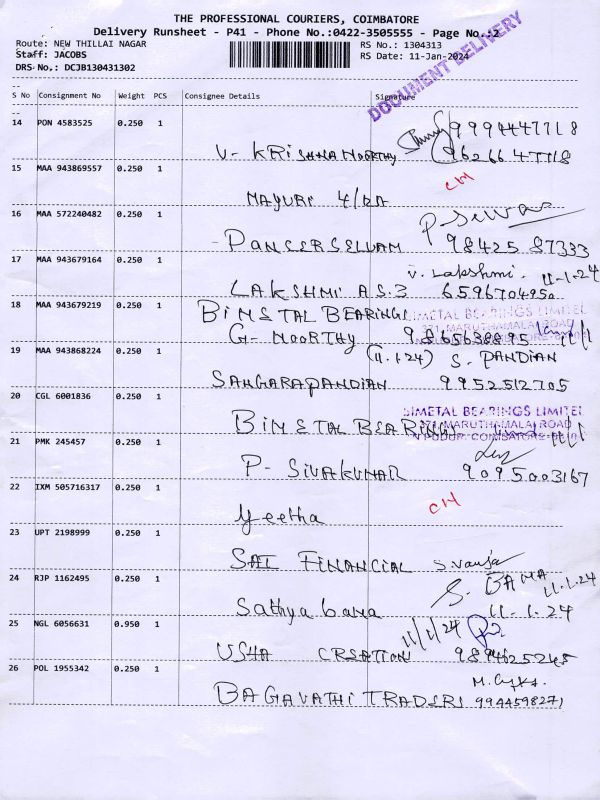 THE PROFESSIONAL COURIERS, COIMBATORE
Delivery Runsheet - P41 - Phone No.:0422-3505555 - Page No.:2
Route: NEW THILLAI NAGAR RS No.: 1304313
Staff: JACOBS RS Date: 11-Jan-2024
DRS No.: DCJB130431302
DOCUMENT DELIVERY
S No Consignment No Weight PCS Consignee Details Signature
14 PON 4583525 0.250 1
V- KRISHNAMOORTHY
15 MAA 943869557 0.250 1
MAYURI
16 MAA 572240482 0.250 1
PANEERSELVAM 98425 87333
17 MAA 943679164 0.250 1
V. Lakshmi. 11-1.24
LAKSHMI A.S.3 6596704950
18 MAA 943679219 0.250 1
BIMETAL BEARINGS
BIMETAL BEARINGS LIMITED
371, MARUTHAMALAI ROAD
G- MOORTHY
19 MAA 943868224 0.250 1
(11.1.24) S. PANDIAN
SANGARAPANDIAN 9952512705
20 CGL 6001836 0.250 1
BIMETAL BEARINGS LIMITED
371, MARUTHAMALAI ROAD
BIMETAL BEARINGS
21 PMK 245457 0.250 1
P- SIVAKUMAR 9095003167
22 IXM 505716317 0.250 1
Geetha
23 UPT 2198999 0.250 1
SAI FINANCIAL
24 RJP 1162495 0.250 1
S. BAMA 11.1.24
Sathya bama 11-1.24
25 NGL 6056631 0.950 1
11/1/24
USHA CREATION 9894625245
26 POL 1955342 0.250 1
BAGAVATHI TRADERS 9944598271